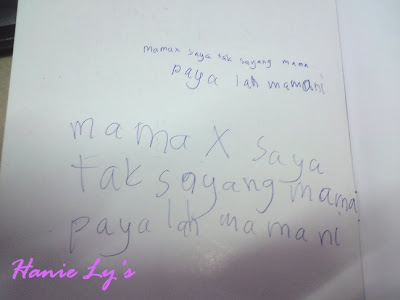 mamax saya tak sayang mama
paya lah mamani
mama X saya
tak sayang mama
paya lah mamani
Hanie Ly's